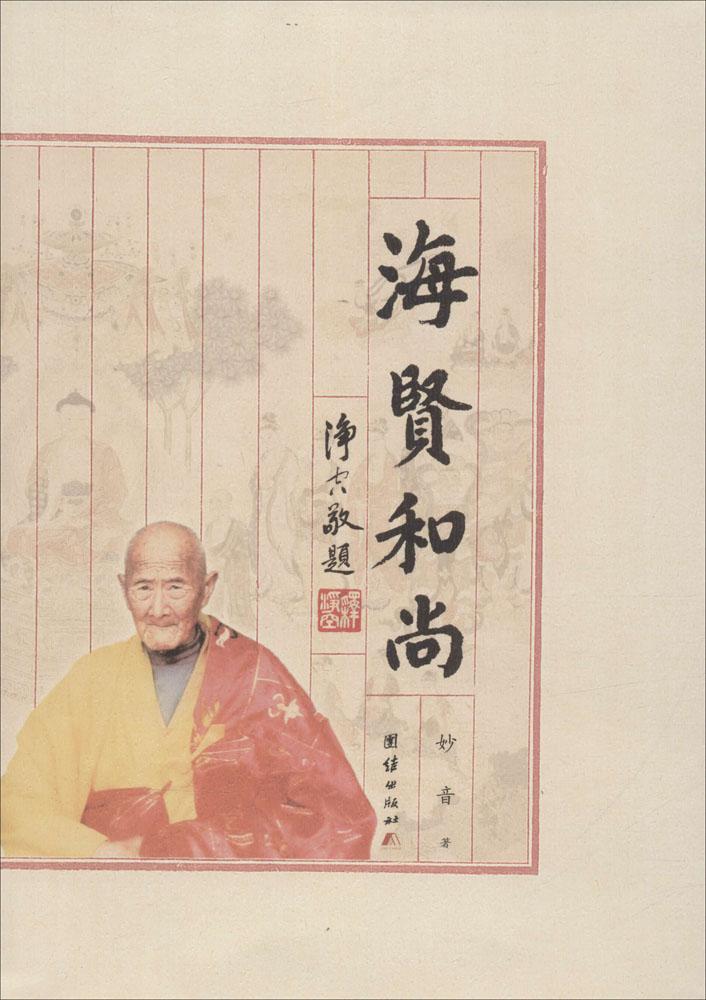 海賢和尚
妙音 著
團结出版社
淨空敬題
釋淨空